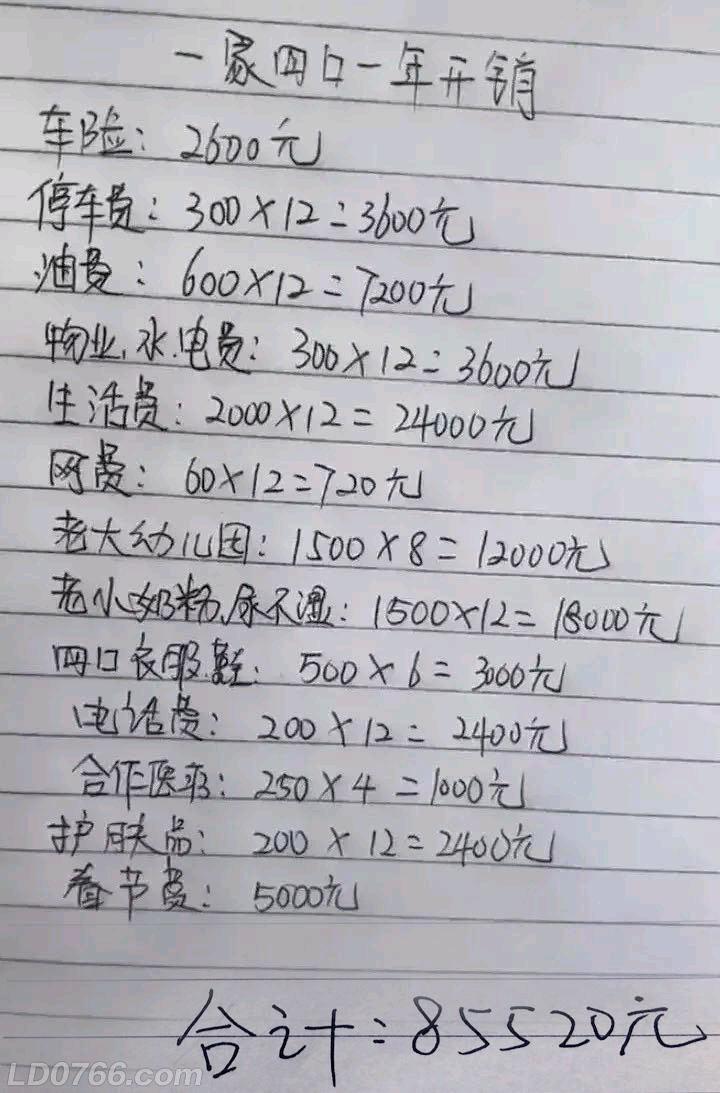 一家四口一年开销
车险：2600元
停车费：300×12=3600元
油费：600×12=7200元
物业、水、电费：300×12=3600元
生活费：2000×12=24000元
网费：60×12=720元
老大幼儿园：1500×8=12000元
老小奶粉、尿不湿：1500×12=18000元
四口衣服、鞋：500×6=3000元
电话费：200×12=2400元
合作医疗：250×4=1000元
护肤品：200×12=2400元
春节费：5000元
合计：85520元
LD0766.com